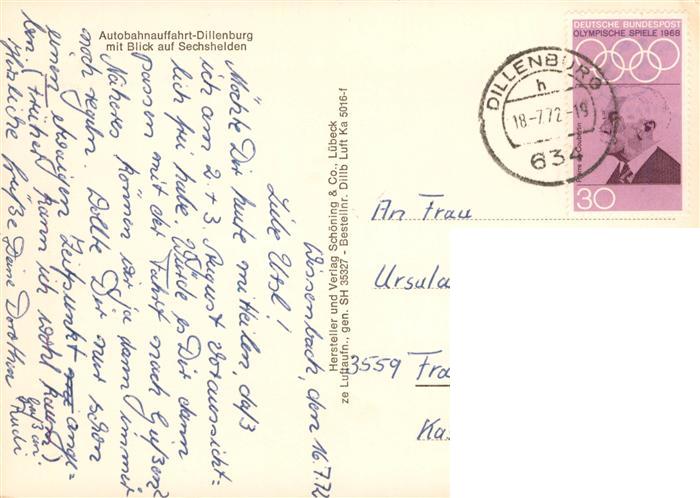 Autobahnauffahrt-Dillenburg
mit Blick auf Sechshelden
DEUTSCHE BUNDESPOST
OLYMPISCHE SPIELE 1968
Pierre de Coubertin
30
DILLENBURG
h
18-7.72-19
634
Hersteller und Verlag Schöning & Co., Lübeck
ze Luftaufn., gen. SH 35327 - Bestellnr. Dillb Luft Ka 5016-f
Wissenbach, den 16.7.72
Liebe Utzl!
Möchte Dir heute mitteilen, daß
ich am 2. + 3. August voraussicht=
lich frei habe. Würde es Dir dann
passen mit der Fahrt nach Gießen?
Näheres können wir ja dann immer
noch regeln. Wollte Dir nur schon
einen etwaigen Zeitpunkt ange=
ben (früher kann ich wohl kaum)
Herzliche Grüße Deine Dorothea
Gruß an
Rudi
An Frau
Ursula
3559 Fra
Ka